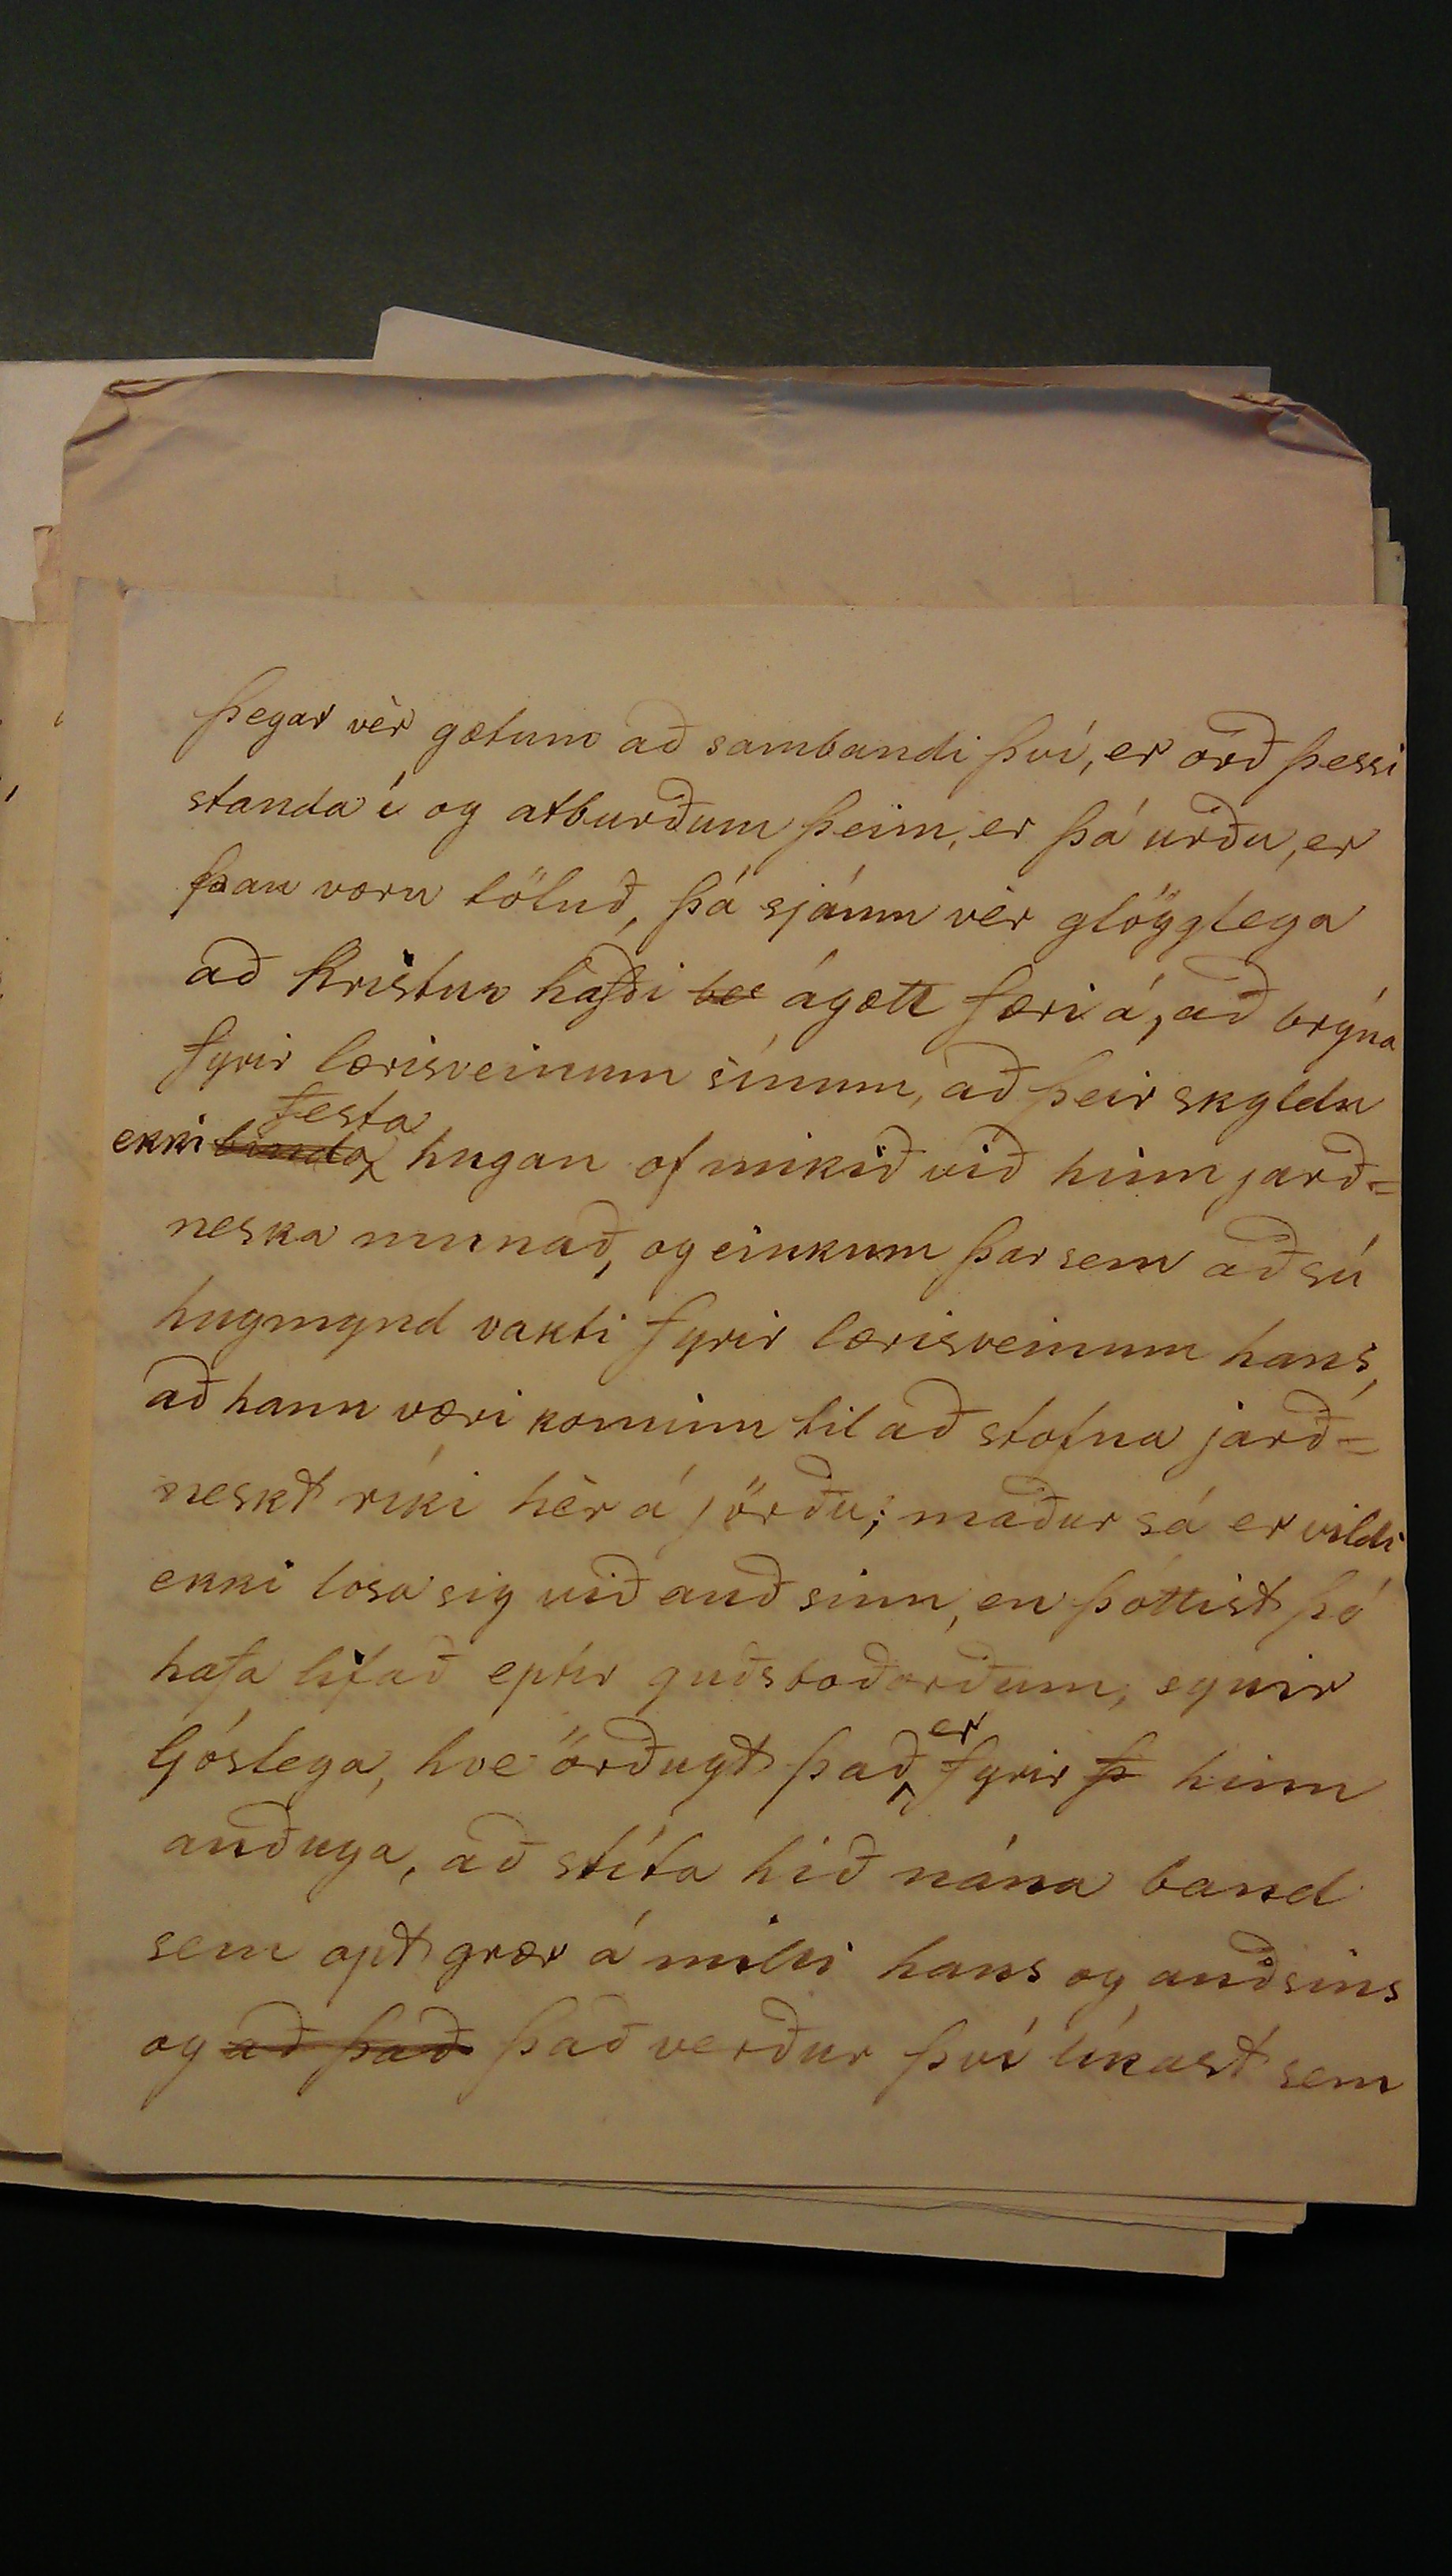 Þegar vèr gætum að sambandi því, er orð þessi
standa í og atburðum þeim, er þá urðu, er
þau voru töluð, þá sjáum vèr glögglega
að Kristur hafði be ágætt færi á, að brýna
fyrir lærisveinum sínum, að þeir skyldu
festa
ekki binda hugan of mikið við hinn jarð=
neska munað, og einkum þar sem að sú
hugmynd vakti fyrir lærisveinum hans,
að hann væri kominn til að stofna jarð=
neskt ríki hèr á jörðu; maður sá er vildi
ekki losa sig við auð sinn, en þóttist þó
hafa lifað eptir guðs boðorðum, synir
ljóslega, hve örðugt það er fyrir þ hinn
auðuga, að slíta hið nána band
sem opt grær á milli hans og auðsins
og að það það verður því líkast sem